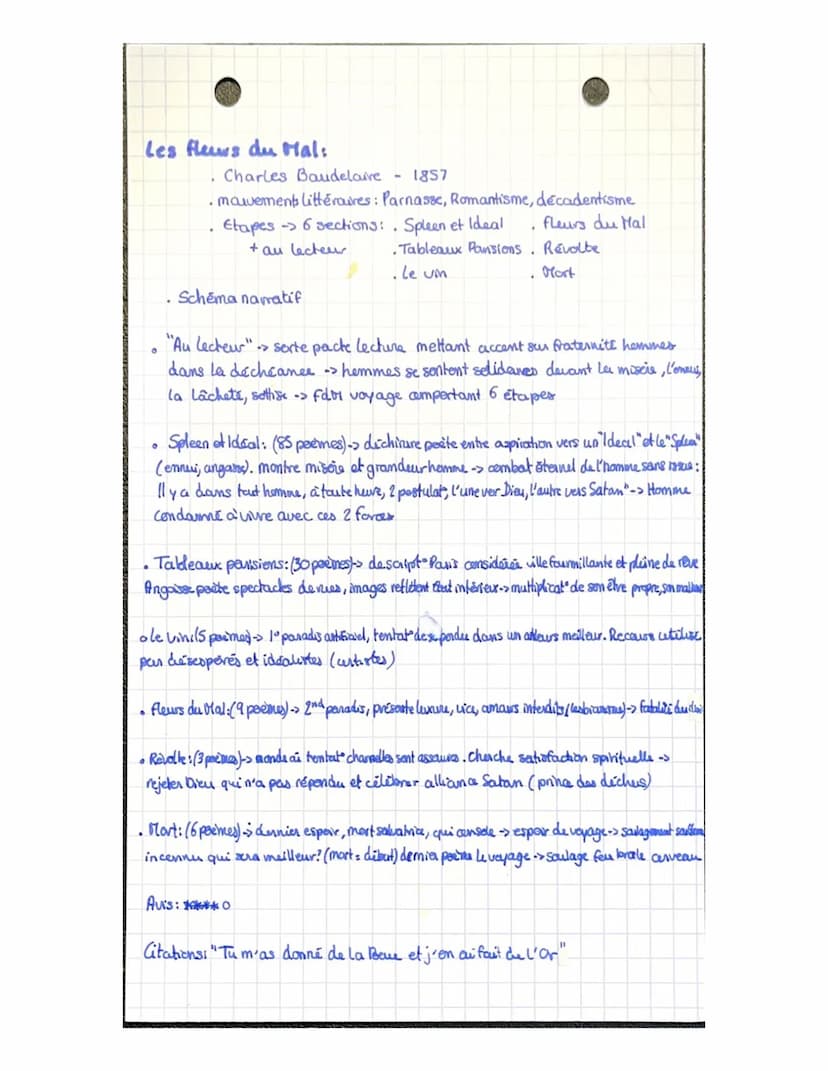 Les fleurs du Mal:
. Charles Baudelaire - 1857
. mouvements littéraires: Parnasse, Romantisme, décadentisme
. Etapes -> 6 sections: . Spleen et Ideal . Fleurs du Mal
+ au lecteur . Tableaux Parisions . Révolte
. Le vin . Mort
. Schéma narratif
• "Au lecteur" -> sorte pacte lecture mettant accent sur fraternité hommes
dans la déchéance -> hommes se sentent solidaires devant la misère, l'ennui,
la lâcheté, sottise -> FdM voyage comportant 6 étapes
• Spleen et Idéal: (85 poèmes) -> déchirure poète entre aspiration vers un "Ideal" et le "Spleen"
(ennui, angoiss). montre misère et grandeur homme -> combat éternel de l'homme sans issue:
Il y a dans tout homme, à toute heure, 2 postulat°, l'une ver Dieu, l'autre vers Satan" -> Homme
condamné à vivre avec ces 2 forces
. Tableaux parisiens: (30 poèmes) -> descript° Paris considérée ville fourmillante et pleine de rêve
Angoisse poète spectacles de rues, images reflétant état intérieur -> multiplicat° de son être propre, son malheur
• Le vin: (5 poèmes) -> 1° paradis artificiel, tentat° de se perdre dans un ailleurs meilleur. Recours utilisé
par désespérés et idéalistes (artistes)
. Fleurs du Mal: (9 poèmes) -> 2nd paradis, présente luxure, vice, amours interdits (lesbianisme) -> fatalité du
• Révolte: (3 poèmes) -> monde où tentat° charnelles sont assouvies. Cherche satisfaction spirituelle ->
rejeter Dieu qui n'a pas répondu et célébrer alliance Satan (prince des déchus)
. Mort: (6 poèmes) -> dernier espoir, mort salvatrice, qui console -> espoir de voyage -> soulagement
inconnu qui sera meilleur? (mort = début) dernier poème Le voyage -> soulage feu brûle cerveau
Avis: ★★★★○
Citations: "Tu m'as donné de la Boue et j'en ai fait de l'Or"